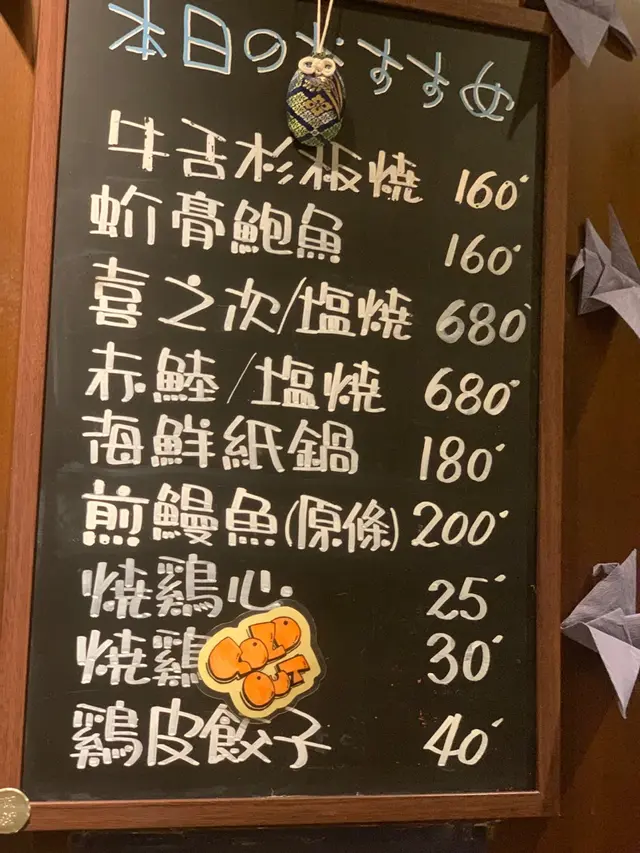 本日のおすすめ
牛舌杉板燒 160
蚧膏鮑魚 160
喜之次/塩燒 680
赤鯥/塩燒 680
海鮮紙鍋 180
煎鰻魚(原條) 200
燒鶏心 25
燒鶏 30
SOLD OUT
鶏皮餃子 40